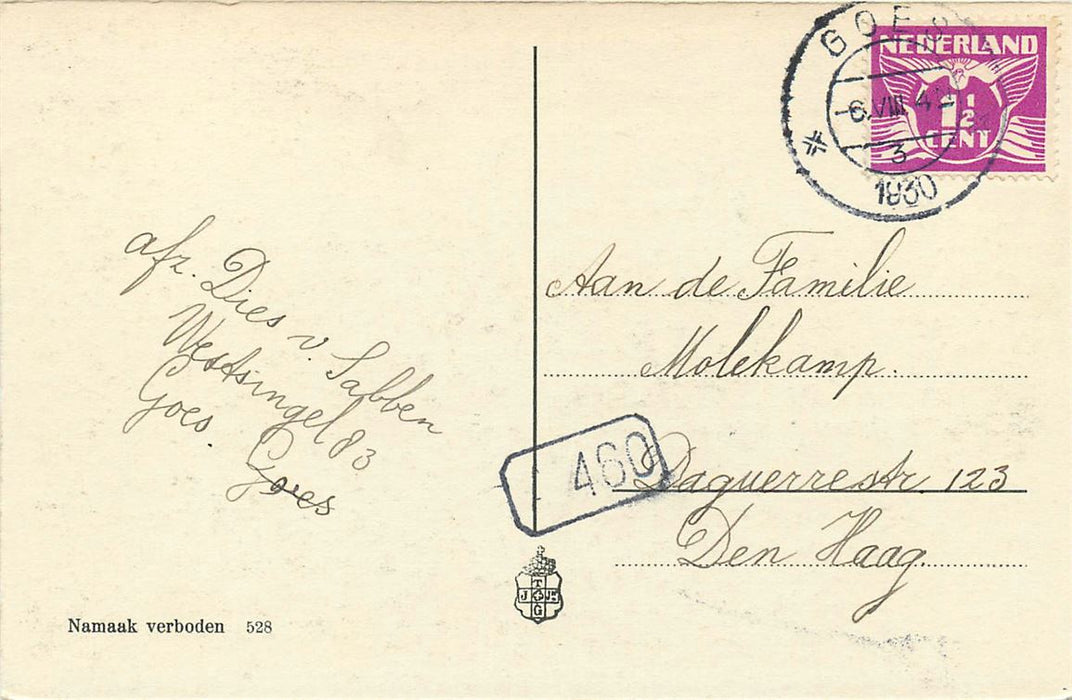 GOES
6.VIII 4
3
1930
NEDERLAND
1½
CENT
afz. Dies v. Sabben
Westsingel 83
Goes.
Goes
Aan de Familie
Molekamp.
460
Daguerrestr. 123
Den Haag.
T
J J JR
G
Namaak verboden 528